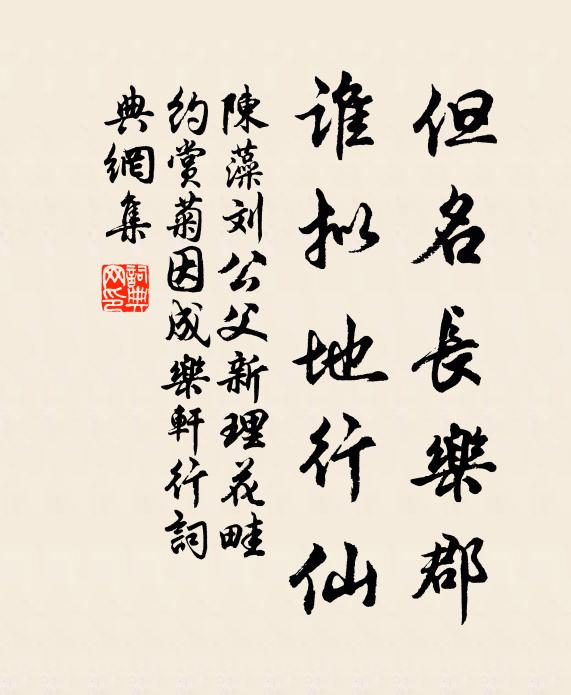 但名長樂郡
誰拟地行仙
陳藻刘公父新理花畦
约赏菊因成樂軒行詞
典網集
詞典
网印